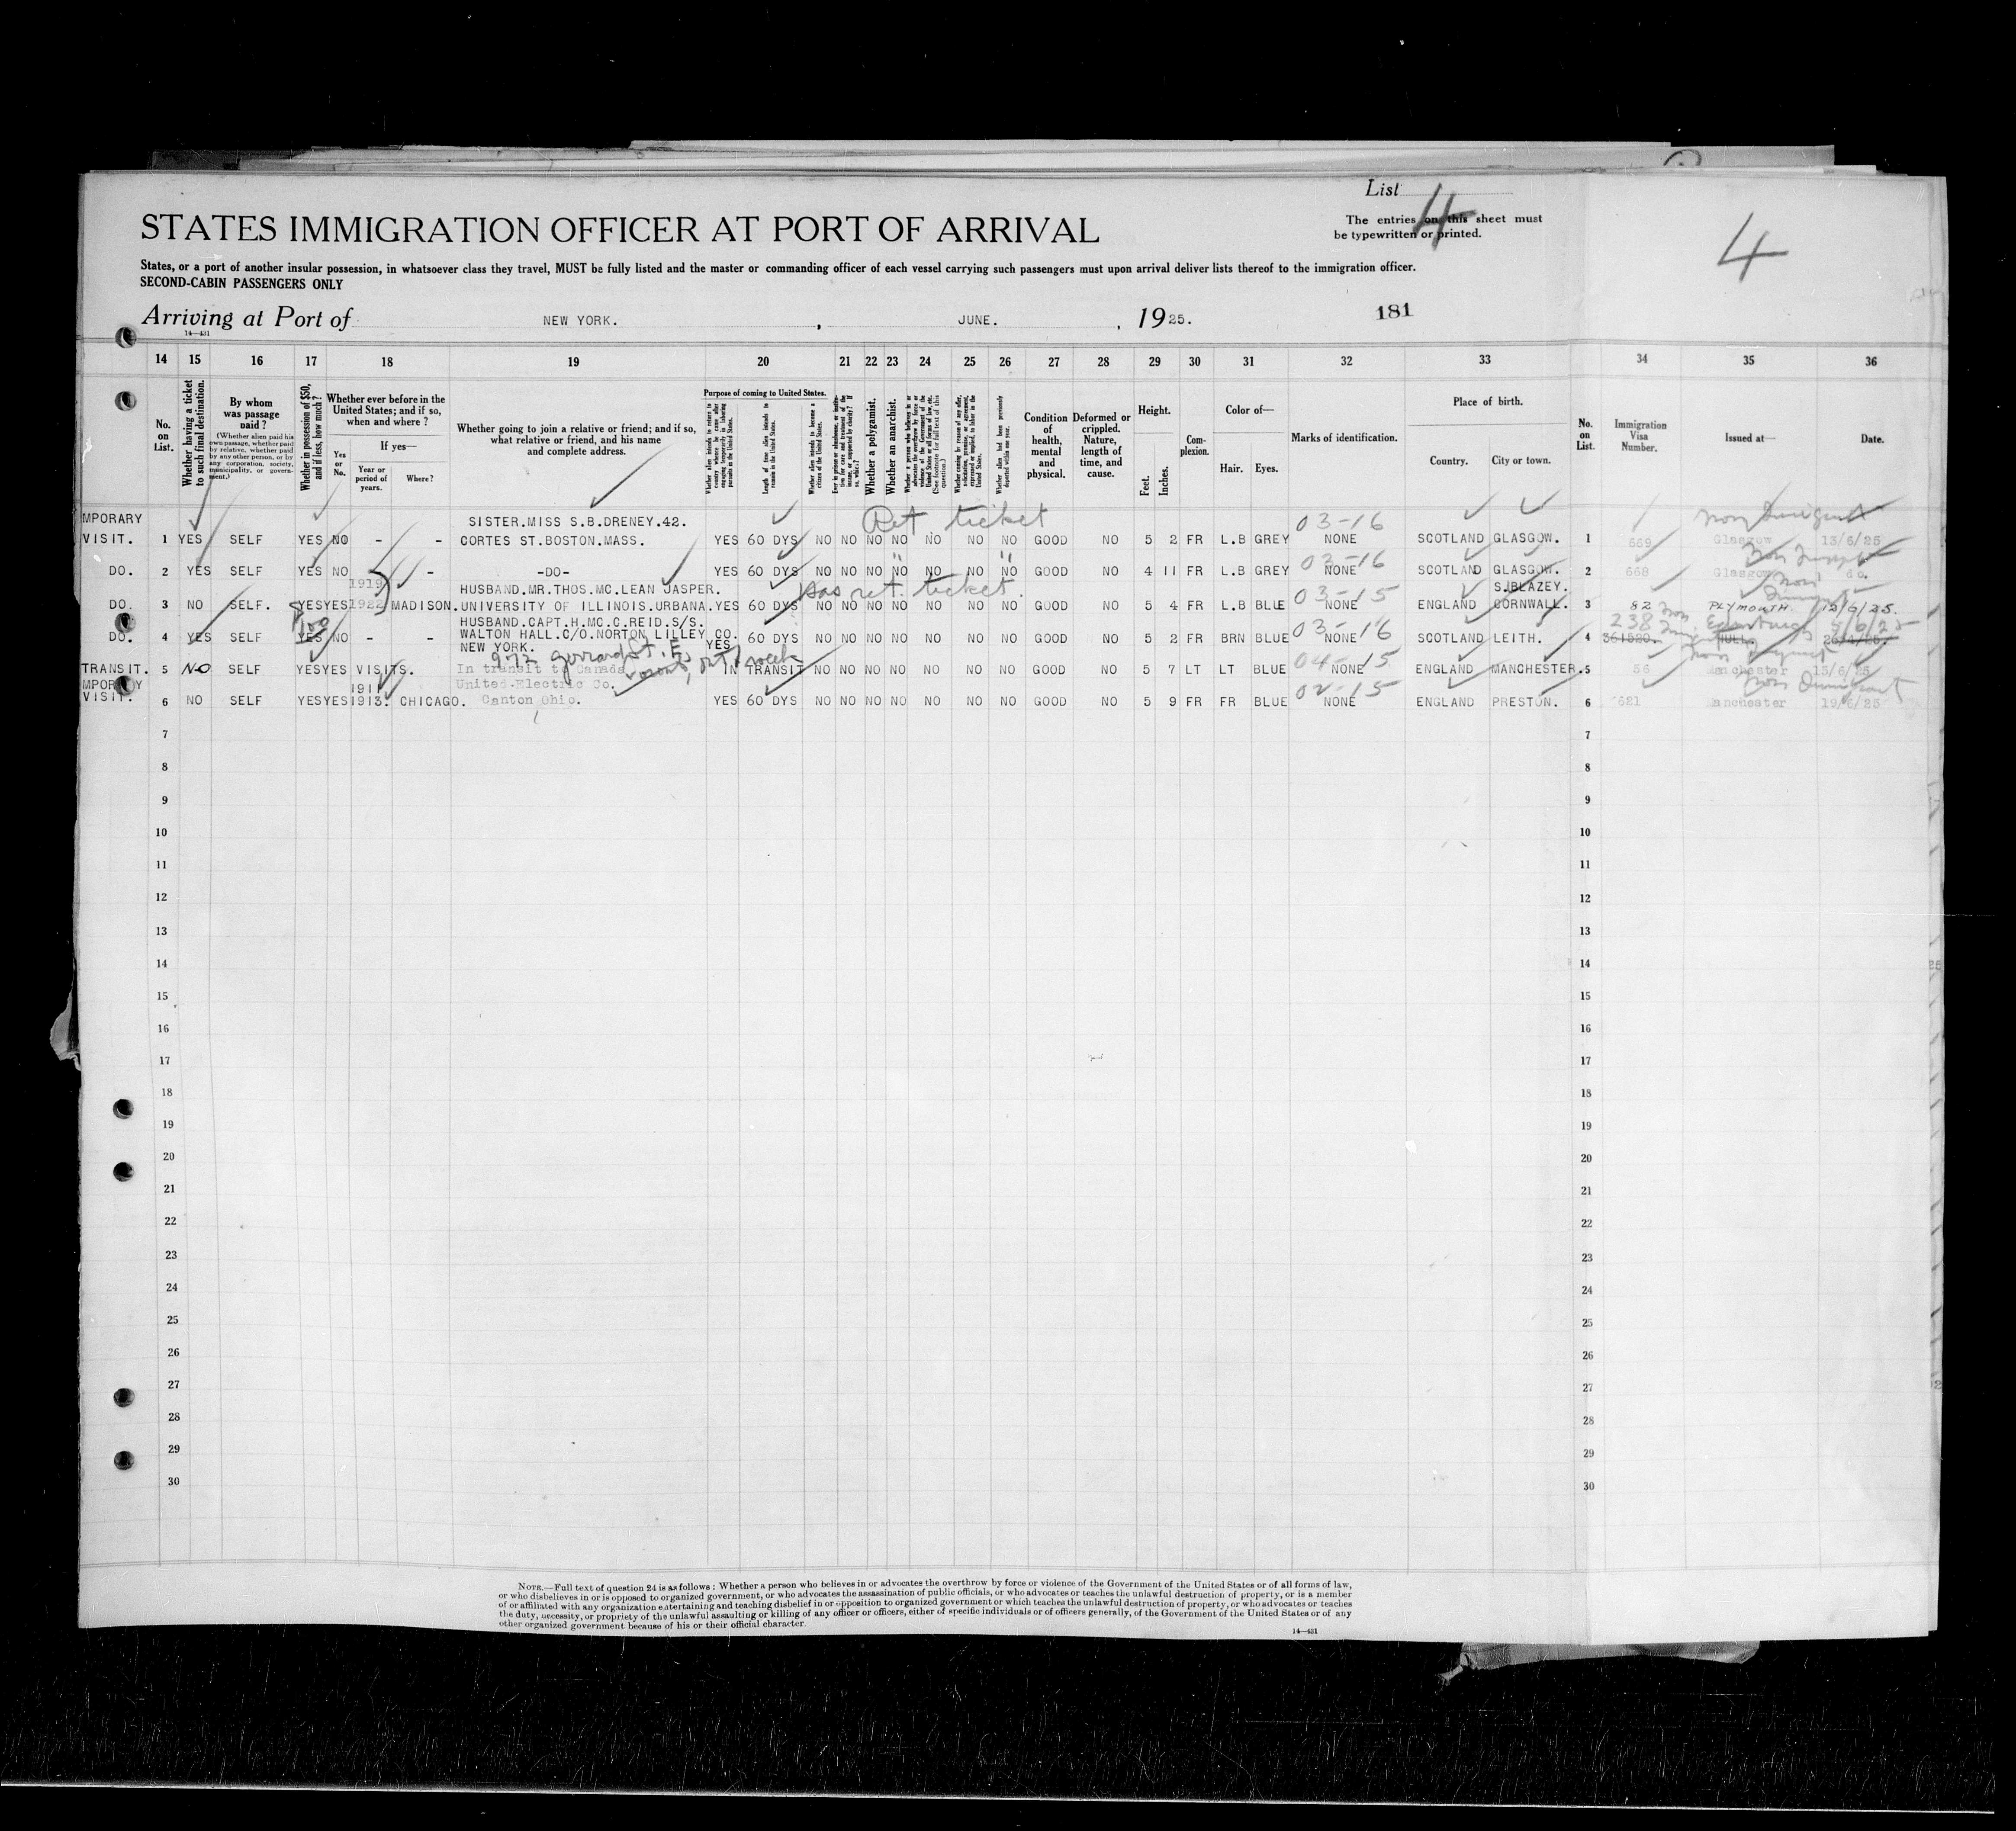 List
4
STATES IMMIGRATION OFFICER AT PORT OF ARRIVAL
The entries on this sheet must
be typewritten or printed.
4
States, or a port of another insular possession, in whatsoever class they travel, MUST be fully listed and the master or commanding officer of each vessel carrying such passengers must upon arrival deliver lists thereof to the immigration officer.
SECOND-CABIN PASSENGERS ONLY
Arriving at Port of NEW YORK. , JUNE. , 1925. 181
14—431
14 15 16 17 18 19 20 21 22 23 24 25 26 27 28 29 30 31 32 33 34 35 36
No. on List.
Whether having a ticket to such final destination.
By whom was passage paid?
(Whether alien paid his own passage, whether paid by relative, whether paid by any other person, or by any corporation, society, municipality, or government.)
Whether in possession of $50, and if less, how much?
Whether ever before in the United States; and if so, when and where?
Yes or No.
If yes—
Year or period of years.
Where?
Whether going to join a relative or friend; and if so, what relative or friend, and his name and complete address.
Purpose of coming to United States.
Whether alien intends to return to country whence he came after engaging temporarily in laboring pursuits in the United States.
Length of time alien intends to remain in the United States.
Whether alien intends to become a citizen of the United States.
Ever in prison or almshouse, or institution for care and treatment of the insane, or supported by charity? If so, which?
Whether a polygamist.
Whether an anarchist.
Condition of health, mental and physical.
Deformed or crippled. Nature, length of time, and cause.
Height.
Feet.
Inches.
Complexion.
Color of—
Hair.
Eyes.
Marks of identification.
Place of birth.
Country.
City or town.
No. on List.
Immigration Visa Number.
Issued at—
Date.
MPORARY SISTER.MISS S.B.DRENEY.42. Ret. ticket 03-16
VISIT. 1 YES SELF YES NO - - CORTES ST.BOSTON.MASS. YES 60 DYS NO NO NO NO NO NO NO GOOD NO 5 2 FR L.B GREY NONE SCOTLAND GLASGOW. 1 669 Glasgow 13/6/25
" " 03-16
DO. 2 YES SELF YES NO - -DO- YES 60 DYS NO NO NO NO NO NO NO GOOD NO 4 11 FR L.B GREY NONE SCOTLAND GLASGOW. 2 668 Glasgow do.
1919 HUSBAND.MR.THOS.MC.LEAN JASPER. Has ret. ticket. 03-15 S.BLAZEY.
DO. 3 NO SELF. YES YES 1922 MADISON. UNIVERSITY OF ILLINOIS.URBANA. YES 60 DYS NO NO NO NO NO NO NO GOOD NO 5 4 FR L.B BLUE NONE ENGLAND CORNWALL. 3 82 PLYMOUTH. 12/6/25.
$100 HUSBAND.CAPT.H.MC.C.REID.S/S. 03-16 238 Edinburgh 5/6/25
DO. 4 YES SELF YES NO - - WALTON HALL.C/O.NORTON LILLEY CO. YES 60 DYS NO NO NO NO NO NO NO GOOD NO 5 2 FR BRN BLUE NONE SCOTLAND LEITH. 4 361520. HULL.
NEW YORK.
972 Gerrard St. E, Toronto, Ont 1 week 04-15
TRANSIT. 5 NO SELF YES YES VISITS. In transit to Canada IN TRANSIT NO NO NO NO NO NO NO GOOD NO 5 7 LT LT BLUE NONE ENGLAND MANCHESTER. 5 56 Manchester 15/6/25
MPORARY 1911 United Electric Co. 02-15
VISIT. 6 NO SELF YES YES 1913. CHICAGO. Canton Ohio. YES 60 DYS NO NO NO NO NO NO NO GOOD NO 5 9 FR FR BLUE NONE ENGLAND PRESTON. 6 621 Manchester 19/6/25
7 7
8 8
9 9
10 10
11 11
12 12
13 13
14 14
15 15
16 16
17 17
18 18
19 19
20 20
21 21
22 22
23 23
24 24
25 25
26 26
27 27
28 28
29 29
30 30
NOTE.—Full text of question 24 is as follows: Whether a person who believes in or advocates the overthrow by force or violence of the Government of the United States or of all forms of law,
or who disbelieves in or is opposed to organized government, or who advocates the assassination of public officials, or who advocates or teaches the unlawful destruction of property, or is a member
of or affiliated with any organization entertaining and teaching disbelief in or opposition to organized government or which teaches the unlawful destruction of property, or who advocates or teaches
the duty, necessity, or propriety of the unlawful assaulting or killing of any officer or officers, either of specific individuals or of officers generally, of the Government of the United States or of any
other organized government because of his or their official character.
14—431